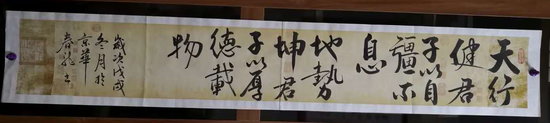 天行
健君
子以自
彊不
息
地勢
坤君
子以厚
德載
物
歲次戊戌
冬月於
京華